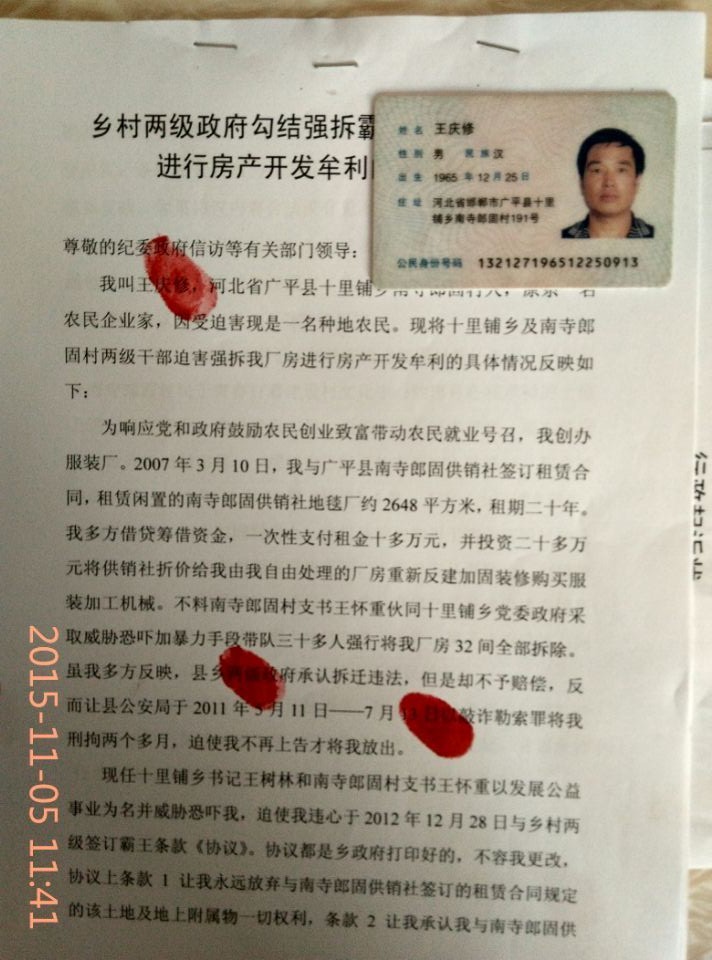 乡村两级政府勾结强拆霸
进行房产开发牟利
姓名 王庆修
性别 男 民族 汉
出生 1965 年 12 月 25 日
住址 河北省邯郸市广平县十里
铺乡南寺郎固村191号
公民身份号码 132127196512250913
尊敬的纪委政府信访等有关部门领导：
我叫王庆修，河北省广平县十里铺乡南寺郎固村人，原系一名
农民企业家，因受迫害现是一名种地农民。现将十里铺乡及南寺郎
固村两级干部迫害强拆我厂房进行房产开发牟利的具体情况反映如
下：
为响应党和政府鼓励农民创业致富带动农民就业号召，我创办
服装厂。2007 年 3 月 10 日，我与广平县南寺郎固供销社签订租赁合
同，租赁闲置的南寺郎固供销社地毯厂约 2648 平方米，租期二十年。
我多方借贷筹借资金，一次性支付租金十多万元，并投资二十多万
元将供销社折价给我由我自由处理的厂房重新反建加固装修购买服
装加工机械。不料南寺郎固村支书王怀重伙同十里铺乡党委政府采
取威胁恐吓加暴力手段带队三十多人强行将我厂房 32 间全部拆除。
虽我多方反映，县乡两级政府承认拆迁违法，但是却不予赔偿，反
而让县公安局于 2011 年 5 月 11 日——7 月 13 日以敲诈勒索罪将我
刑拘两个多月，迫使我不再上告才将我放出。
现任十里铺乡书记王树林和南寺郎固村支书王怀重以发展公益
事业为名并威胁恐吓我，迫使我违心于 2012 年 12 月 28 日与乡村两
级签订霸王条款《协议》。协议都是乡政府打印好的，不容我更改，
协议上条款 1 让我永远放弃与南寺郎固供销社签订的租赁合同规定
的该土地及地上附属物一切权利，条款 2 让我承认我与南寺郎固供
2015-11-05 11:41